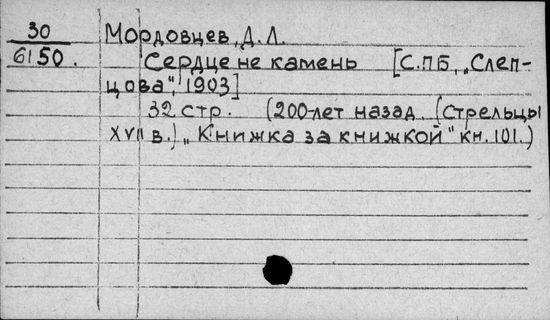 30 Мордовцев, Д.Л.
6150. Сердце не камень [С.ПБ, „Слеп-
цова", 1903]
32 стр. (200-лет назад. (Стрельцы
XVII в.) „Книжка за книжкой" кн. 101.)